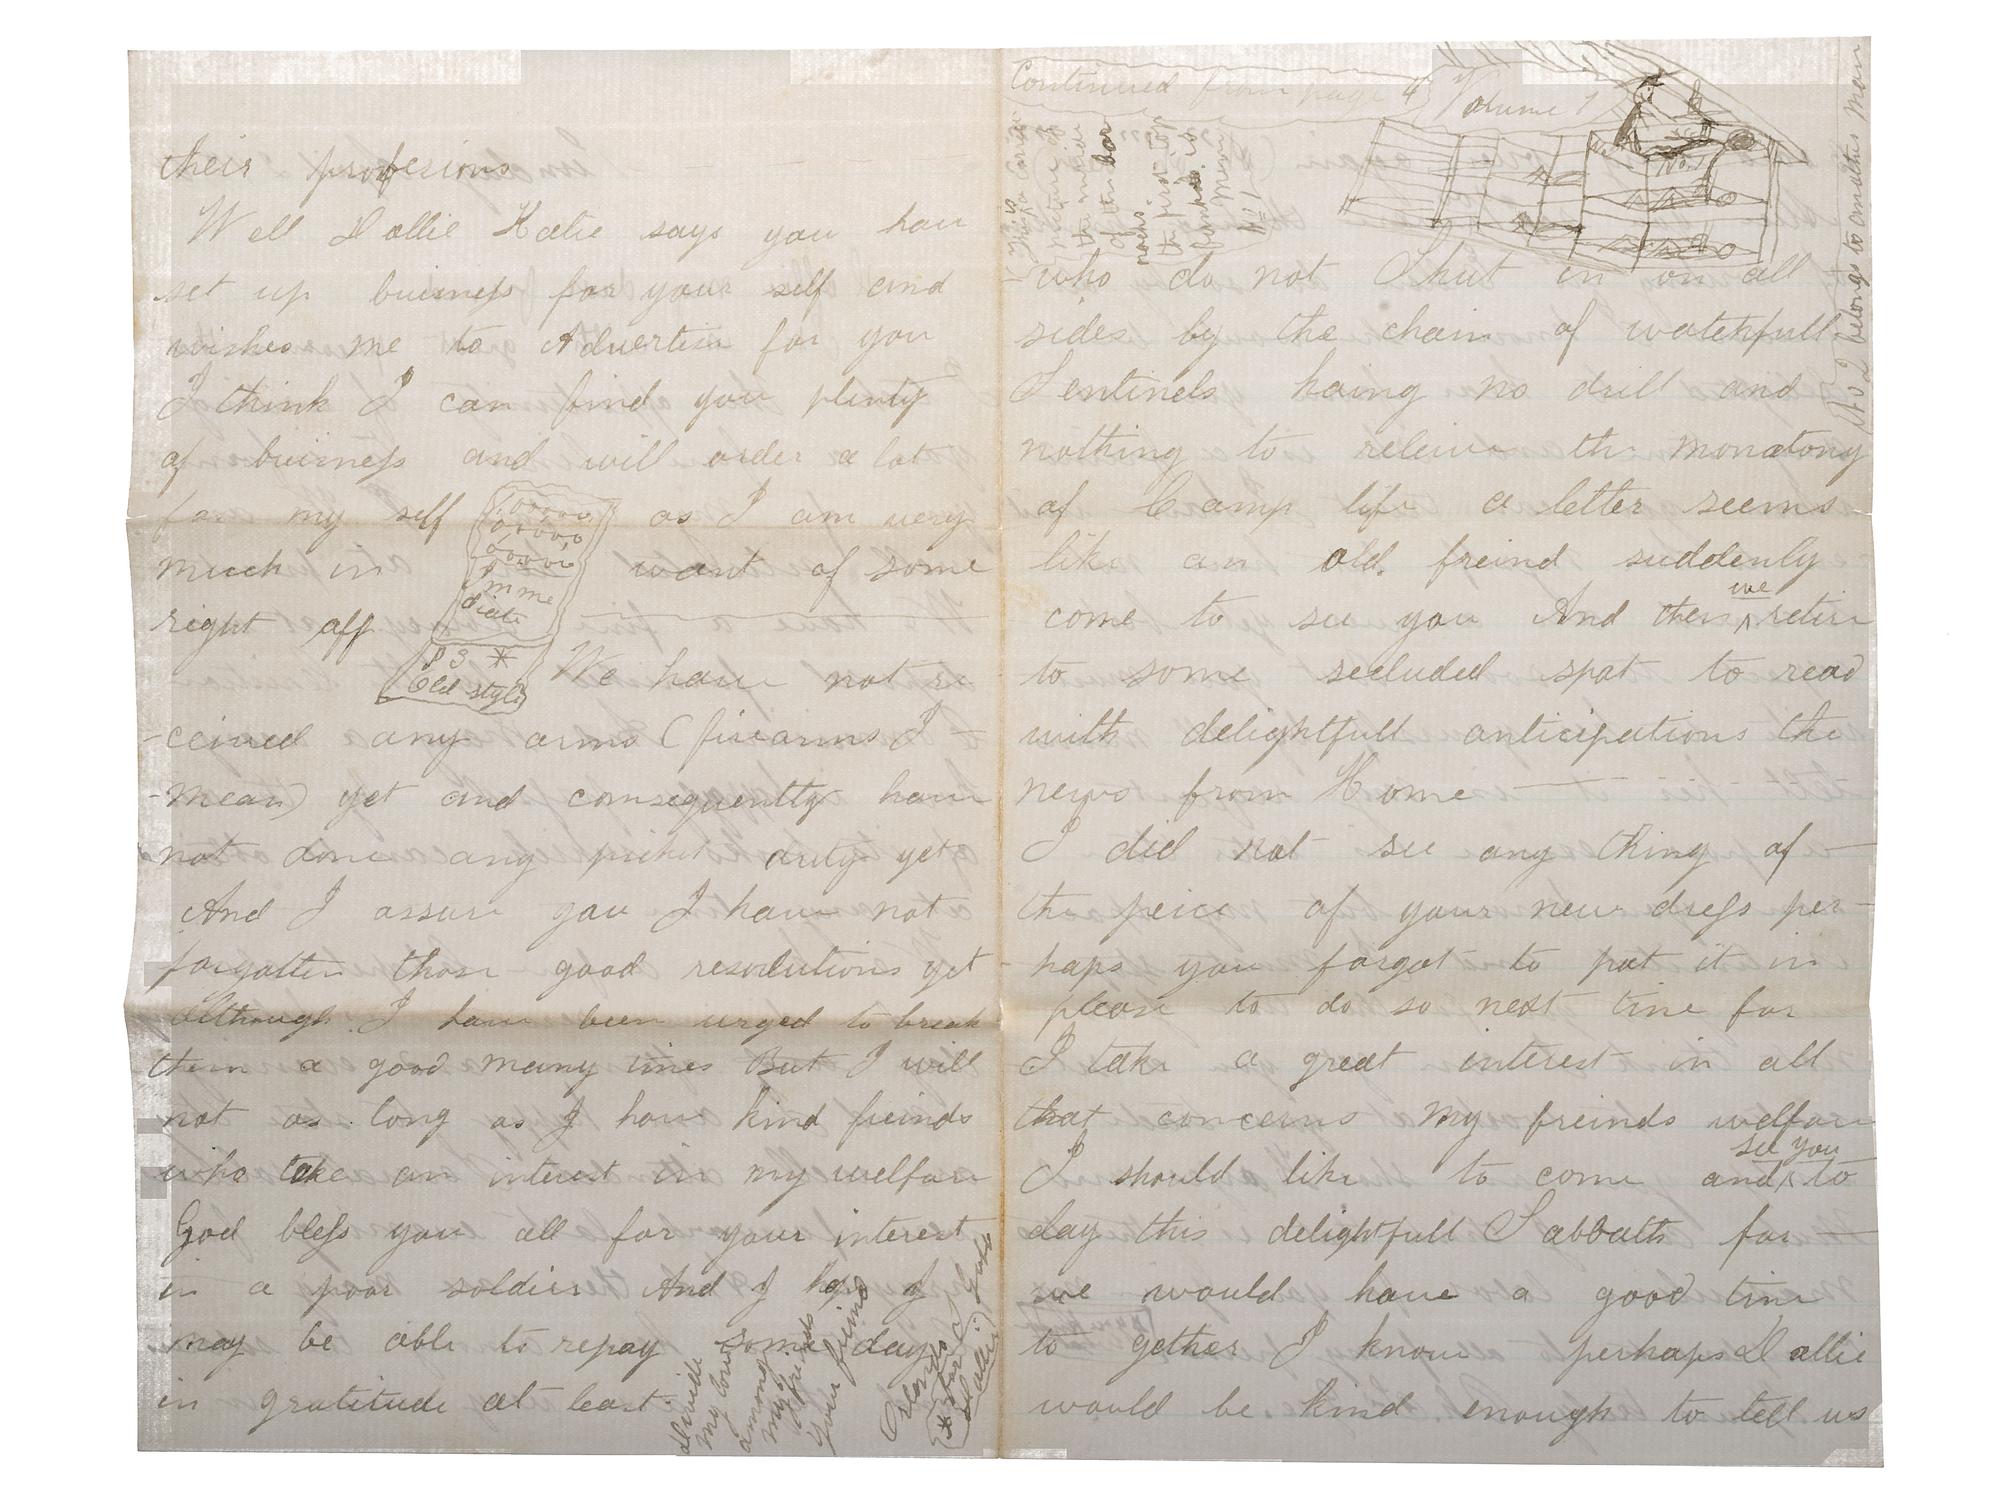 their profesions
Well Dollie Katie says you have
set up buisness for your self and
wishes me to Advertise for you
I think I can find you plenty
of buisness and will order a lot
for my self as I am very
much in want of some
right off
Imme
diate
P S *
Old style
We have not re
ceived any arms (firearms I
mean) yet and consequently have
not done any picket duty yet
And I assure you I have not
forgotten those good resolutions yet
Although I have been urged to break
them a good many times But I will
not as long as I have kind freinds
who take an interest in my welfare
God bless you all for your interest
in a poor soldier And I hope I
may be able to repay some day
in gratitude at least
Divide
my love
among
my
freinds
Your freind
Orlando
Continued from page 4 Volume 1
This is a Correct
picture of
the inside
of the bar
racks.
the first top
bunk is
mine
No 1
No 1
No 2 belongs to another man
who do not Shut in on all
sides by the chain of watchfull
Sentinels having no drill and
nothing to releive the monotony
of Camp life a letter seems
like an old freind suddenly
come to see you And then we retire
to some secluded spot to read
with delightfull anticipations the
news from Home
I did not see any thing of
the peice of your new dress per-
haps you forgot to put it in
please to do so next time for
I take a great interest in all
that concerns my freinds welfare
I should like to come and see you to
day this delightfull Sabbath for
we would have a good time
to gether I know perhaps Dollie
would be kind enough to tell us